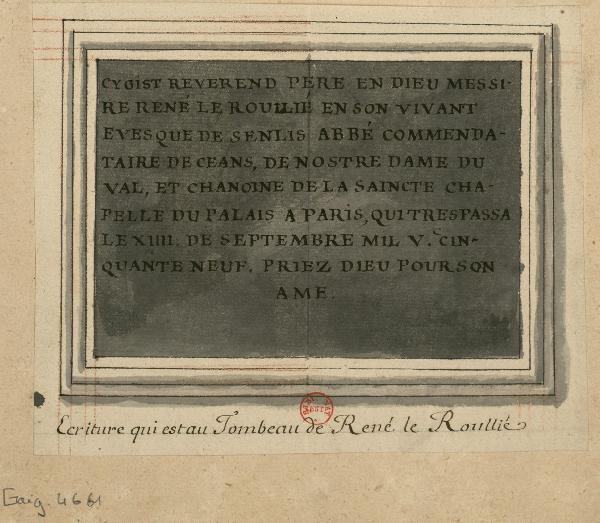 CYGIST REVEREND PERE EN DIEU MESSI-
RE RENÉ LE ROULLIÉ EN SON VIVANT
EVESQUE DE SENLIS ABBÉ COMMENDA-
TAIRE DE CEANS, DE NOSTRE DAME DU
VAL, ET CHANOINE DE LA SAINCTE CHA-
PELLE DU PALAIS A PARIS, QUI TRESPASSA
LE XIIII. DE SEPTEMBRE MIL V.C CIN-
QUANTE NEUF. PRIEZ DIEU POUR SON
AME.
Ecriture qui est au Tombeau de René le Roullié
Gaig. 4661